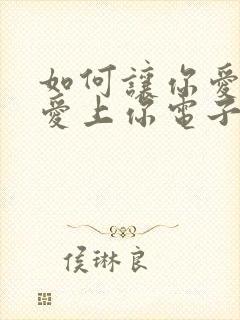 如何讓你愛
愛上你電子
侯琳良